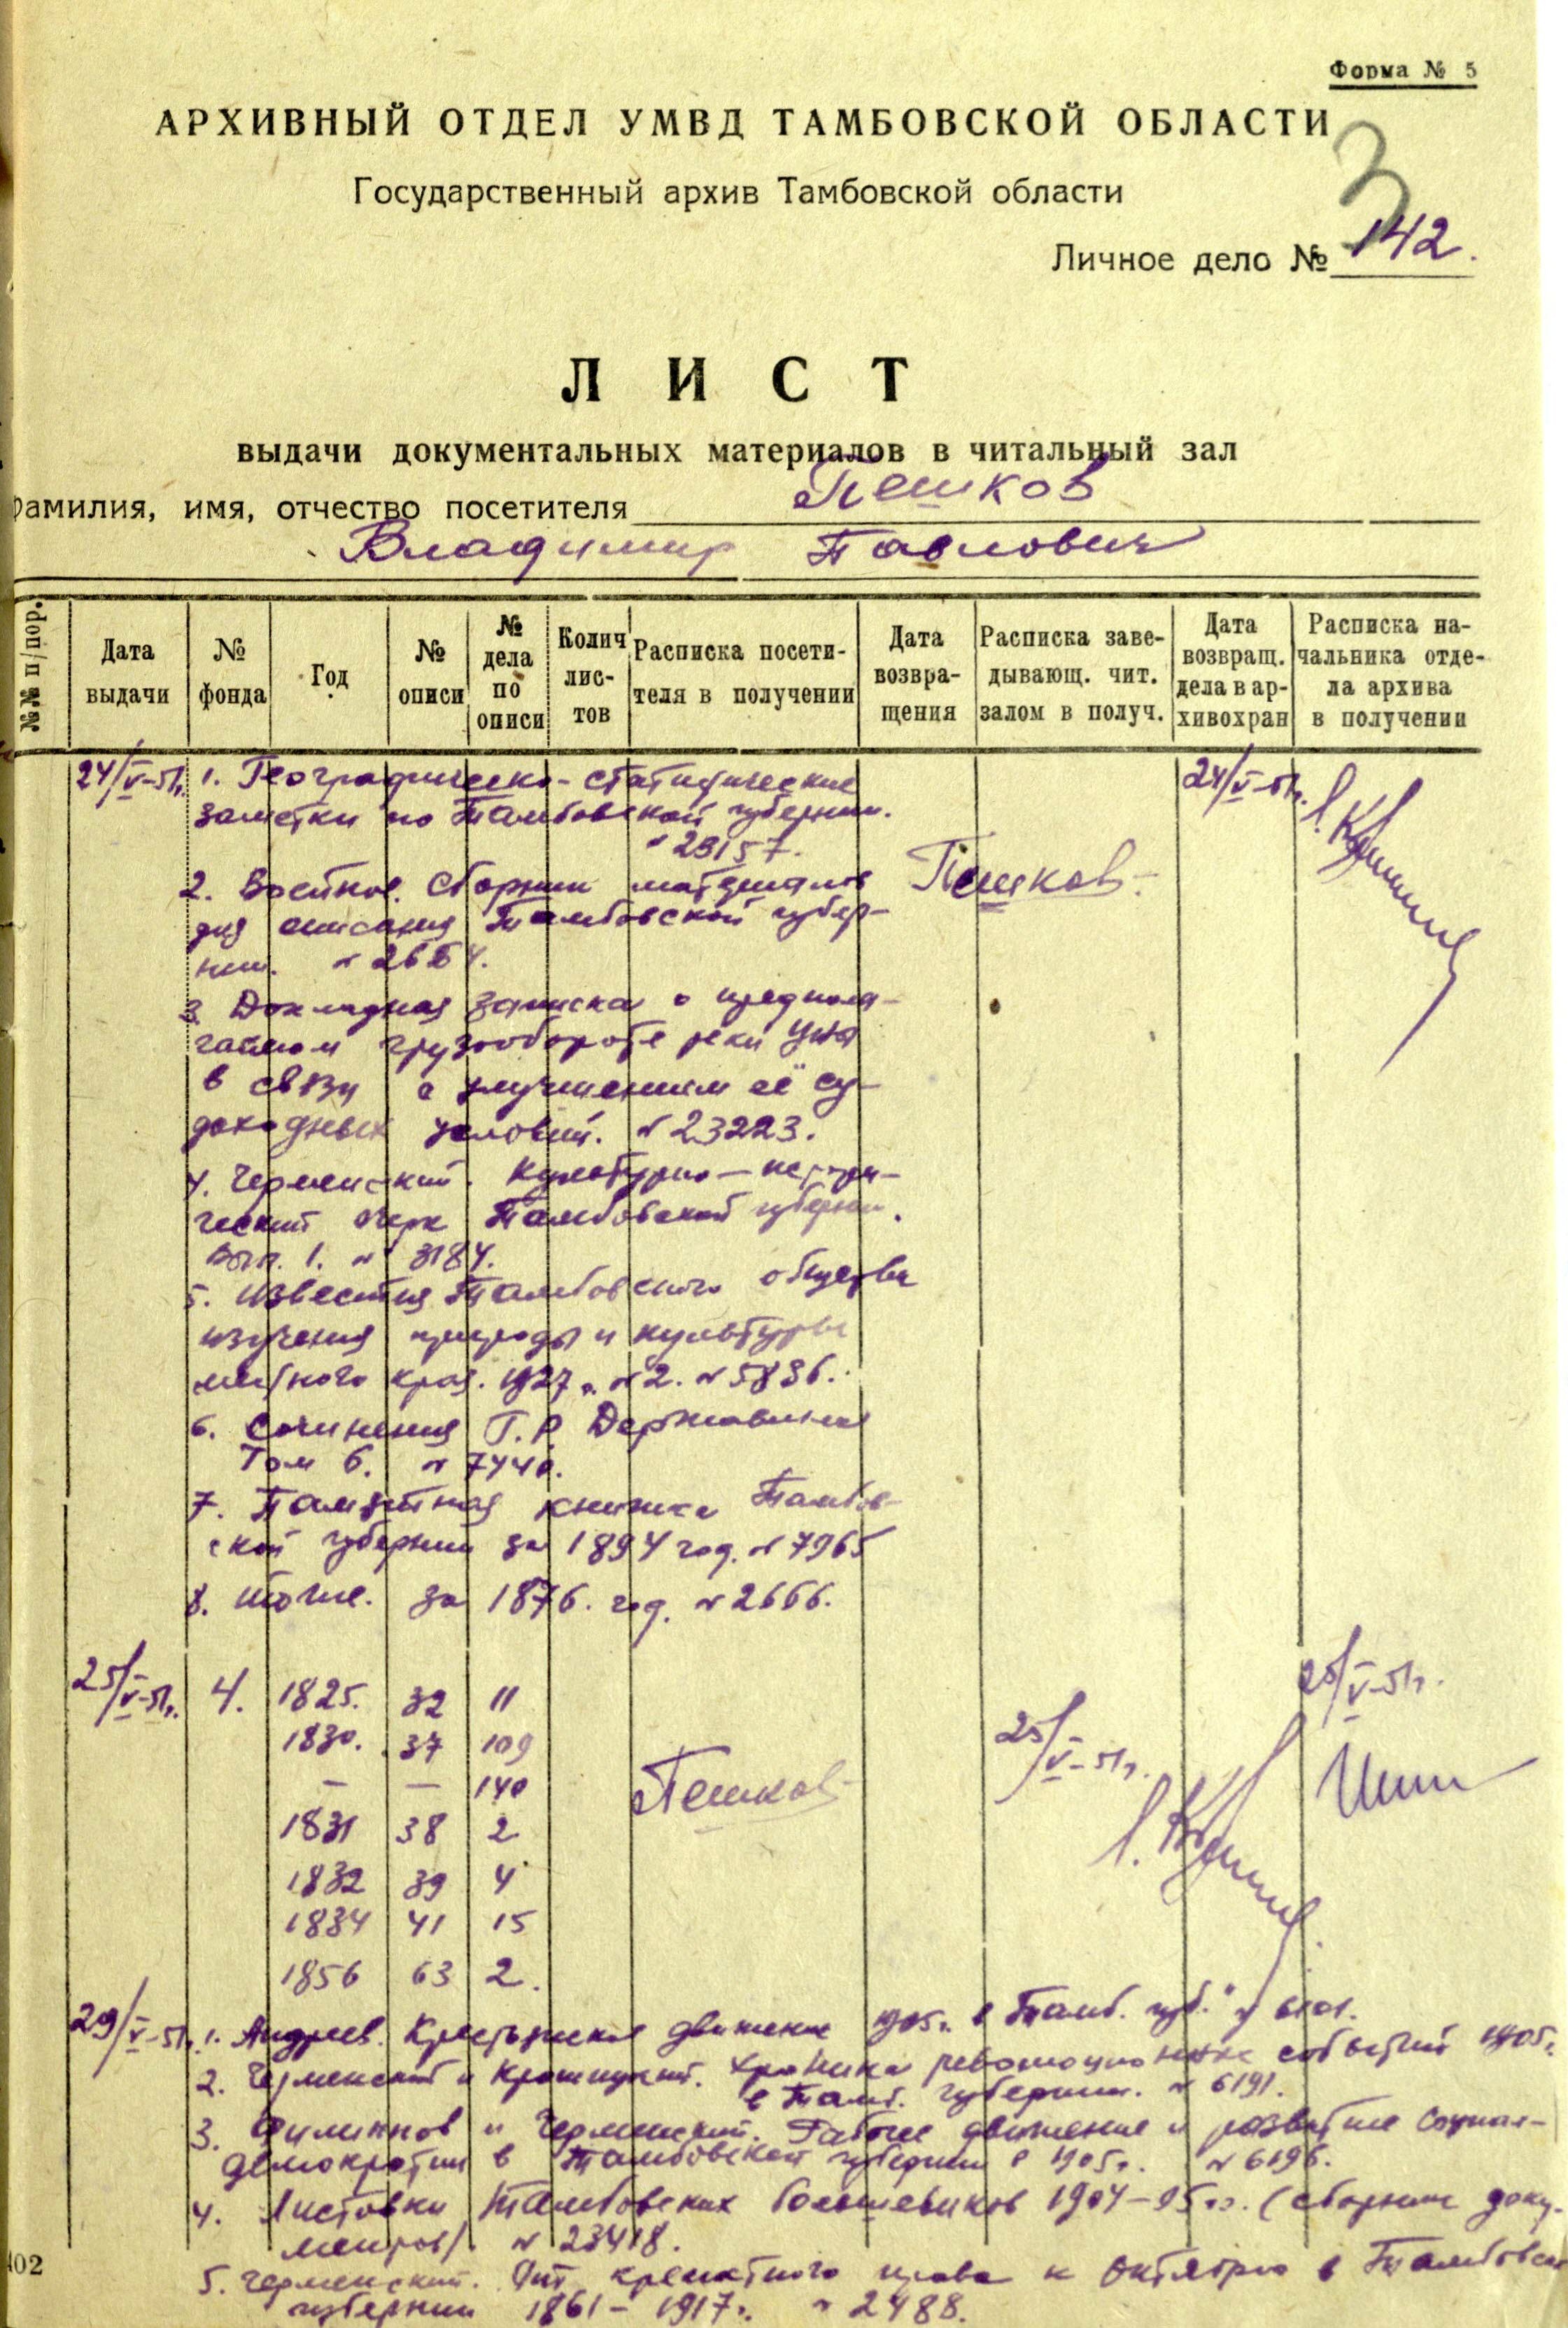 Форма № 5
АРХИВНЫЙ ОТДЕЛ УМВД ТАМБОВСКОЙ ОБЛАСТИ
Государственный архив Тамбовской области
3
Личное дело № 142.
ЛИСТ
выдачи документальных материалов в читальный зал
фамилия, имя, отчество посетителя Пешков
Владимир Павлович
№№ п/пор.
Дата выдачи
№ фонда
Год
№ описи
№ дела по описи
Колич лис-тов
Расписка посети-теля в получении
Дата возвра-щения
Расписка заве-дывающ. чит. залом в получ.
Дата возвращ. дела в ар-хивохран
Расписка на-чальника отде-ла архива в получении
24/V-51г. 1. Географическо-статистические 24/V-51г.
заметки по Тамбовской губернии.
№ 23157.
2. Военное. Сборник материалов Пешков
для описания Тамбовской губер-
нии. №
3. Докладная записка о предпола-
гаемом грузообороте реки Цны
в связи с улучшением её су-
доходных условий. № 23223.
4. Черменский. Культурно-истори-
ческий очерк Тамбовской губернии.
Вып. 1. № 3184.
5. Известия Тамбовского общества
изучения природы и культуры
местного края. 1927 г. № 2. № 5836.
6. Сочинения Г.Р. Державина
Том 6. № 7440.
7. Памятная книжка Тамбов-
ской губернии за 1894 год. № 7965
8. Тоже. за 1876. год. № 2666.
25/V-51г. 4. 1825. 32 11 25/V-51г.
1830. 37 109 25/V-51г.
— — 140 Пешков
1831 38 2
1832 39 4
1834 41 15
1856 63 2.
29/V-51г. 1. Андреев. Крестьянское движение 1905г. в Тамб. губ." № 6101.
2. Черменский и. Хроника революционных событий 1905г.
в Тамб. губернии. № 6191.
3. Филиппов и Черменский. Рабочее движение и развитие социал-
демократии в Тамбовской губернии в 1905г. № 6196.
4. Листовки Тамбовских большевиков 1904-05гг. (сборник доку-
ментов). № 23418.
5. Черменский. От крепостного права к Октябрю в Тамбовской
губернии 1861-1917г. № 2488.
402